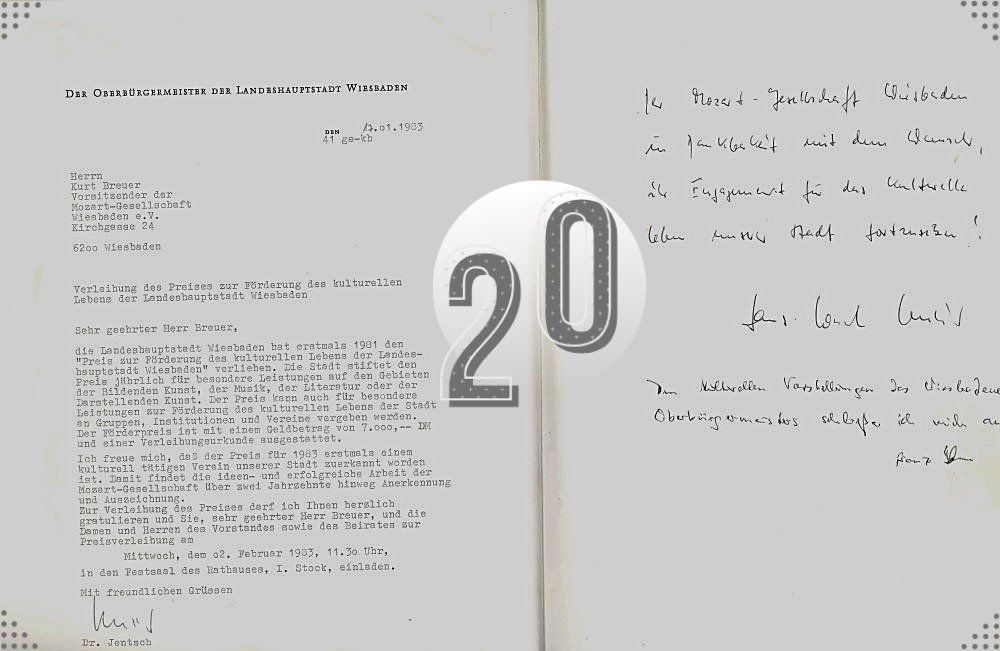 DER OBERBÜRGERMEISTER DER LANDESHAUPTSTADT WIESBADEN
DEN 17.01.1983
41 ge-kh
Herrn
Kurt Breuer
Vorsitzender der
Mozart-Gesellschaft
Wiesbaden e.V.
Kirchgasse 24
62oo Wiesbaden
Verleihung des Preises zur Förderung des kulturellen
Lebens der Landeshauptstadt Wiesbaden
Sehr geehrter Herr Breuer,
die Landeshauptstadt Wiesbaden hat erstmals 1981 den
"Preis zur Förderung des kulturellen Lebens der Landes-
hauptstadt Wiesbaden" verliehen. Die Stadt stiftet den
Preis jährlich für besondere Leistungen auf den Gebieten
der Bildenden Kunst, der Musik, der Literatur oder der
Darstellenden Kunst. Der Preis kann auch für besondere
Leistungen zur Förderung des kulturellen Lebens der Stadt
an Gruppen, Institutionen und Vereine vergeben werden.
Der Förderpreis ist mit einem Geldbetrag von 7.ooo,-- DM
und einer Verleihungsurkunde ausgestattet.
Ich freue mich, daß der Preis für 1983 erstmals einem
kulturell tätigen Verein unserer Stadt zuerkannt worden
ist. Damit findet die ideen- und erfolgreiche Arbeit der
Mozart-Gesellschaft über zwei Jahrzehnte hinweg Anerkennung
und Auszeichnung.
Zur Verleihung des Preises darf ich Ihnen herzlich
gratulieren und Sie, sehr geehrter Herr Breuer, und die
Damen und Herren des Vorstandes sowie des Beirates zur
Preisverleihung am
Mittwoch, dem o2. Februar 1983, 11.3o Uhr,
in den Festsaal des Rathauses, I. Stock, einladen.
Mit freundlichen Grüssen
Dr. Jentsch
20
Der Mozart-Gesellschaft Wiesbaden
in Dankbarkeit mit dem Wunsch,
ihr Engagement für das kulturelle
Leben unserer Stadt fortzusetzen!
Den kulturellen Vorstellungen des Wiesbadener
Oberbürgermeisters schließe ich mich an
Franz